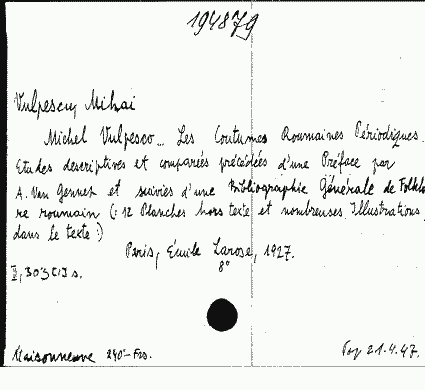 194879
Vulpescu, Mihai
Michel Vulpesco... Les Coutumes Roumaines Périodiques.
Etudes descriptives et comparées précédées d'une Préface par
A. Van Gennep et suivies d'une Bibliographie Générale de Folklo
re roumain (: 12 Planches hors texte et nombreuses Illustrations
dans le texte :)
Paris, Émile Larose, 1927.
8°
303 s.
Maisonneuve 240- Frs.
21.4.47.